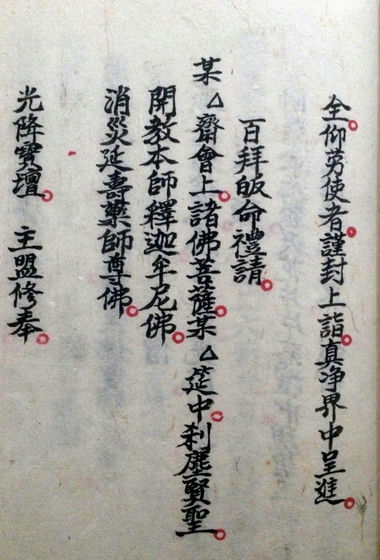 全仰勞使者謹封上詣真净界中呈進
百拜皈命禮請
某△齋會上諸佛菩薩某△筵中刹塵賢聖
開教本師釋迦牟尼佛
消災延壽藥師尊佛
光降寳壇 主盟修奉